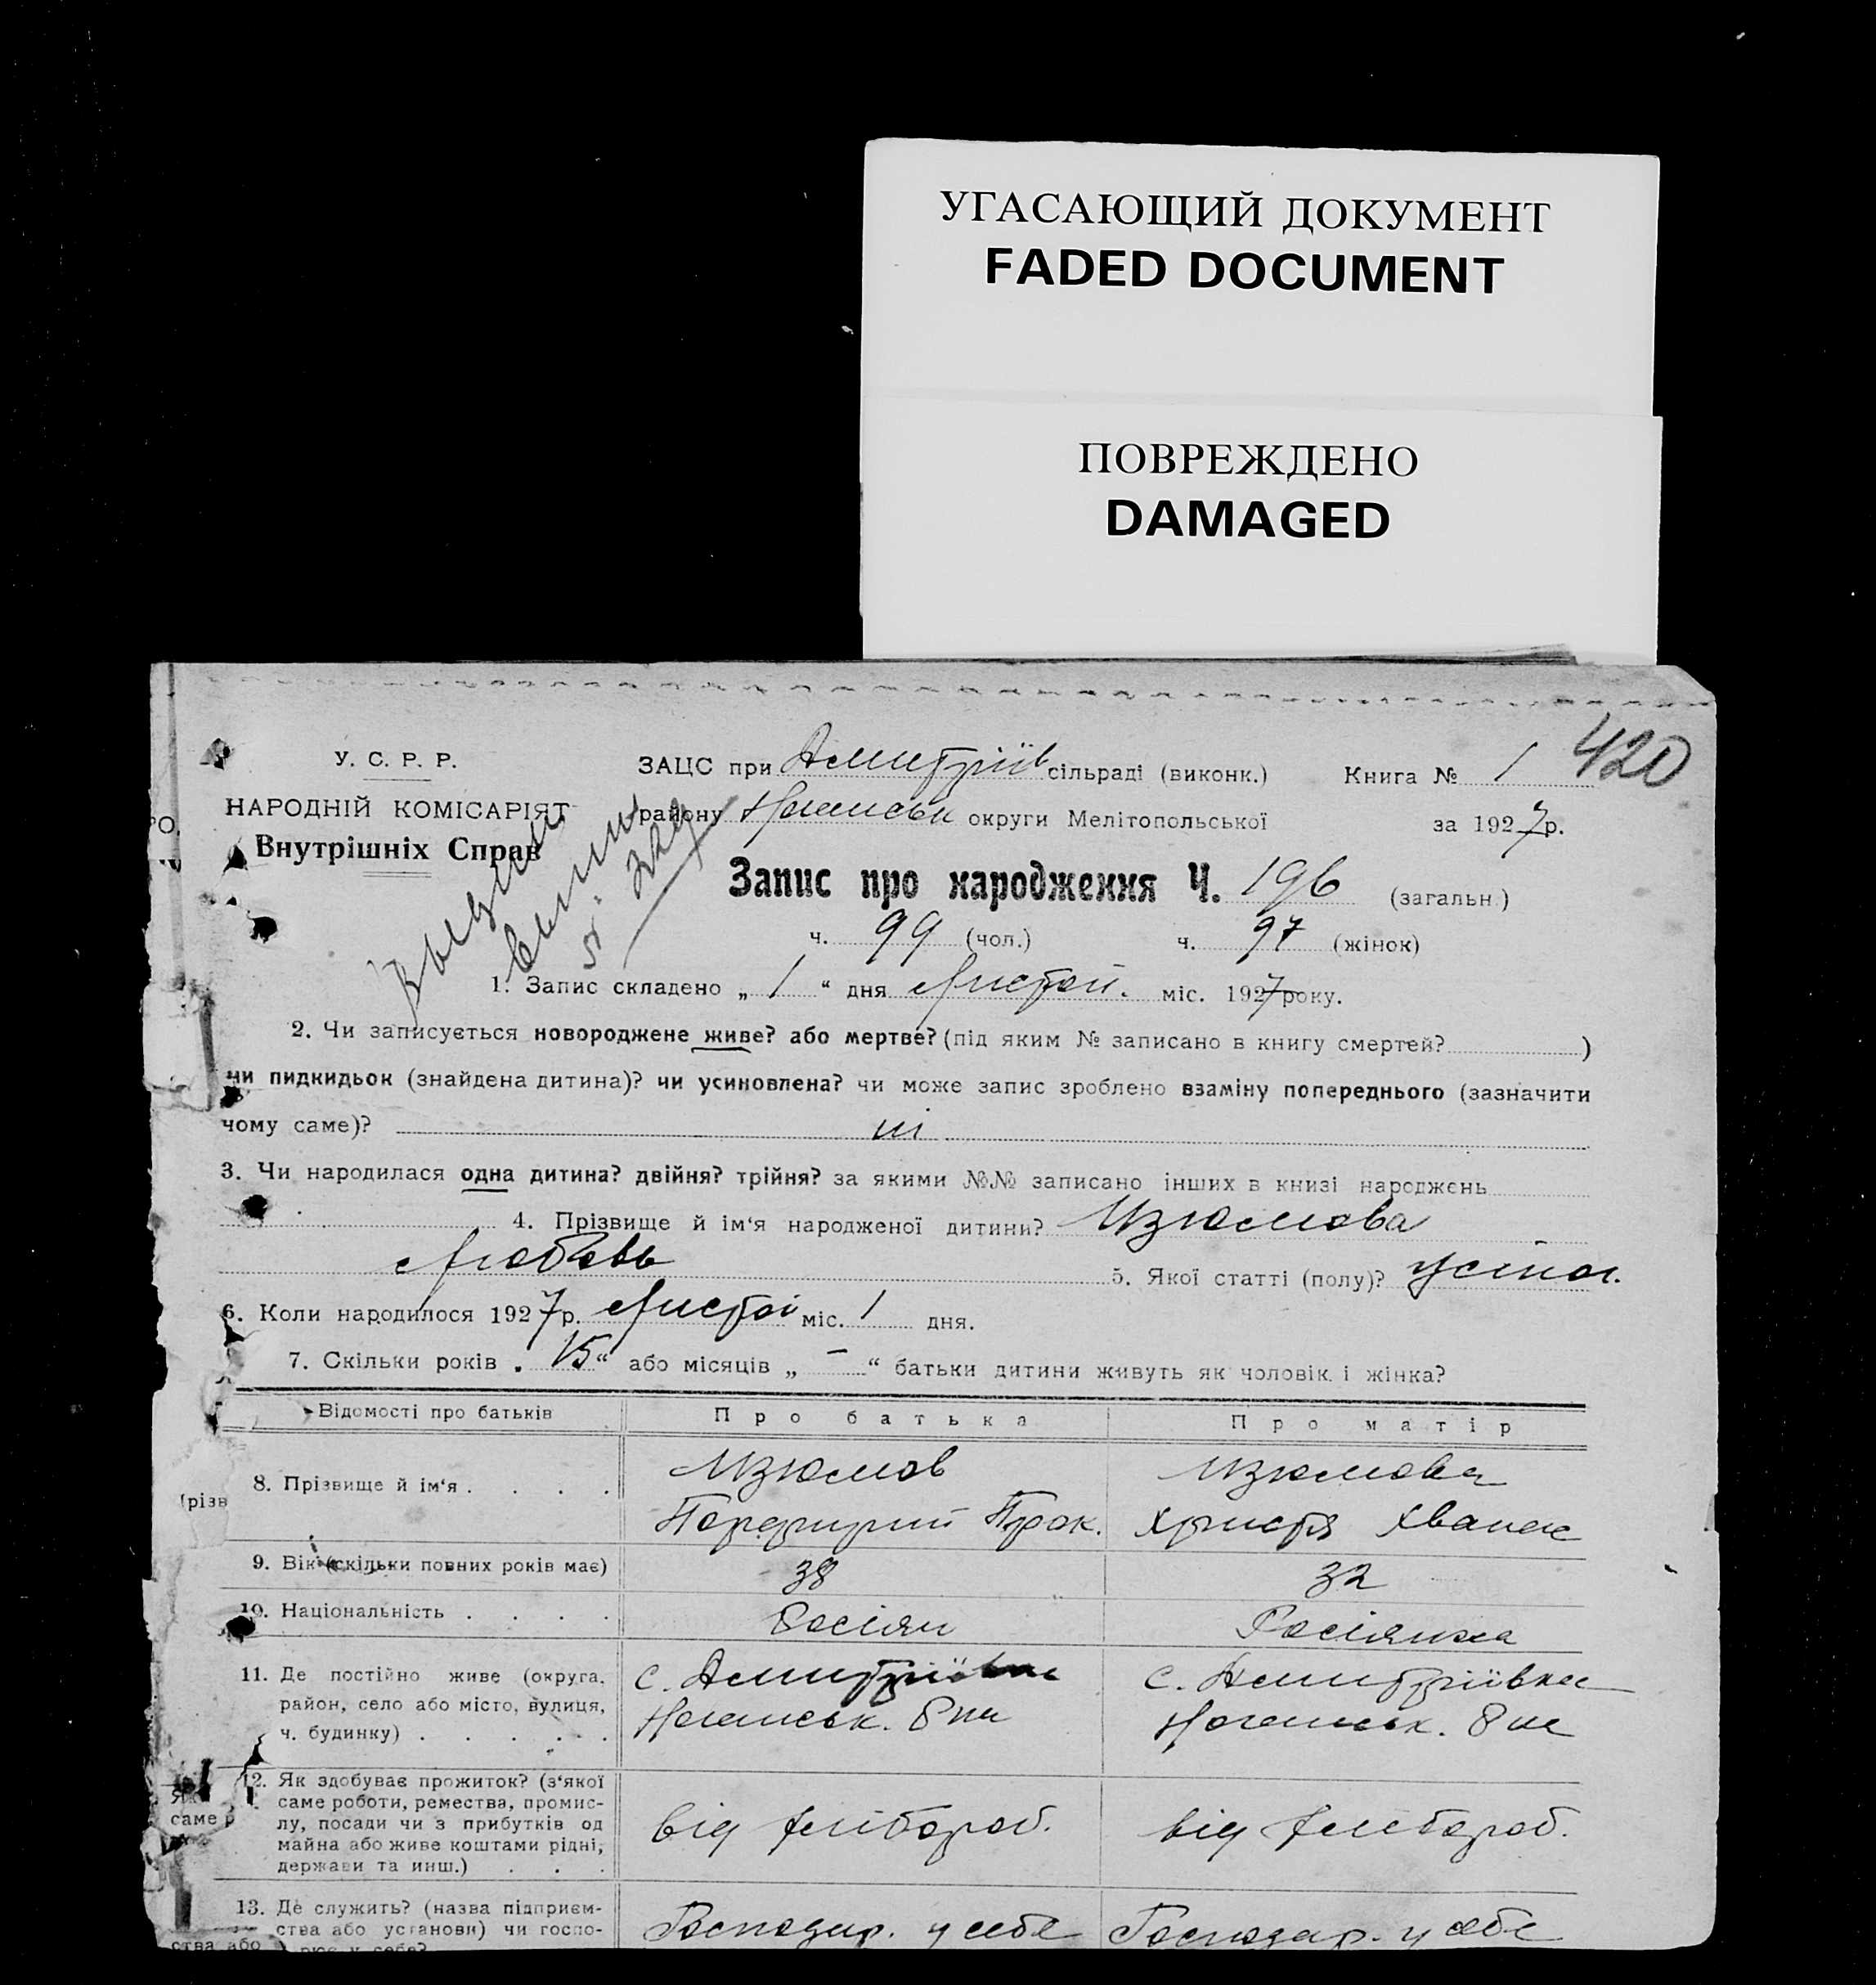 УГАСАЮЩИЙ ДОКУМЕНТ
FADED DOCUMENT
ПОВРЕЖДЕНО
DAMAGED
420
У. С. Р. Р.
НАРОДНІЙ КОМІСАРІЯТ
Внутрішніх Справ
ЗАЦС при Дмитріїв сільраді (виконк.) Книга № 1
району округи Мелітопольської за 1927 р.
Запис про народження Ч. 196 (загальн.)
ч. 99 (чол.) ч. 97 (жінок)
1. Запис складено „ 1 “ дня Листоп. міс. 1927 року.
2. Чи записується новороджене живе? або мертве? (під яким № записано в книгу смертей? )
чи пидкидьок (знайдена дитина)? чи усиновлена? чи може запис зроблено взаміну попереднього (зазначити
чому саме)? ні
3. Чи народилася одна дитина? двійня? трійня? за якими №№ записано інших в книзі народжень
4. Прізвище й ім‘я народженої дитини? Изюмова
Любовь 5. Якої статті (полу)?
6. Коли народилося 1927 р. Листоп міс. 1 дня.
7. Скільки років „ 15 “ або місяців „ – “ батьки дитини живуть як чоловік і жінка?
Відомості про батьків Про батька Про матір
8. Прізвище й ім‘я . . . . Изюмов Изюмова
Порфирий Прок. Христя
9. Вік (скільки повних років має) 38 32
10. Національність . . . . Росіян Росіянка
11. Де постійно живе (округа, с. Дмитріївка с. Дмитріївка
район, село або місто, вулиця, Ногайськ. Ногайськ.
ч. будинку) . . . . . .
12. Як здобуває прожиток? (з‘якої
саме роботи, ремества, промис-
лу, посади чи з прибутків од від хлібороб. від хлібороб.
майна або живе коштами рідні,
держави та инш.) . . .
13. Де служить? (назва підприєм-
ства або установи) чи госпо- Господар. у себе Господар. у себе
рює у себе?